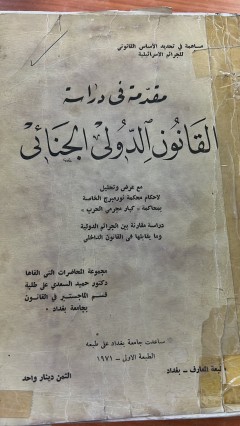 مساهمة في تحديد الأساس القانوني
للجرائم الاسرائيلية
مقدمة في دراسة
القانون الدولي الجنائي
مع عرض وتحليل
لاحكام محكمة نورمبرج الخاصة
بمحاكمة « كبار مجرمي الحرب »
دراسة مقارنة بين الجرائم الدولية
وما يقابلها في القانون الداخلي
مجموعة المحاضرات التي القاها
دكتور حميد السعدي على طلبة
قسم الماجستير في القانون
بجامعة بغداد
ساعدت جامعة بغداد على طبعه
الطبعة الاولى - ١٩٧١
مطبعة المعارف - بغداد
الثمن دينار واحد